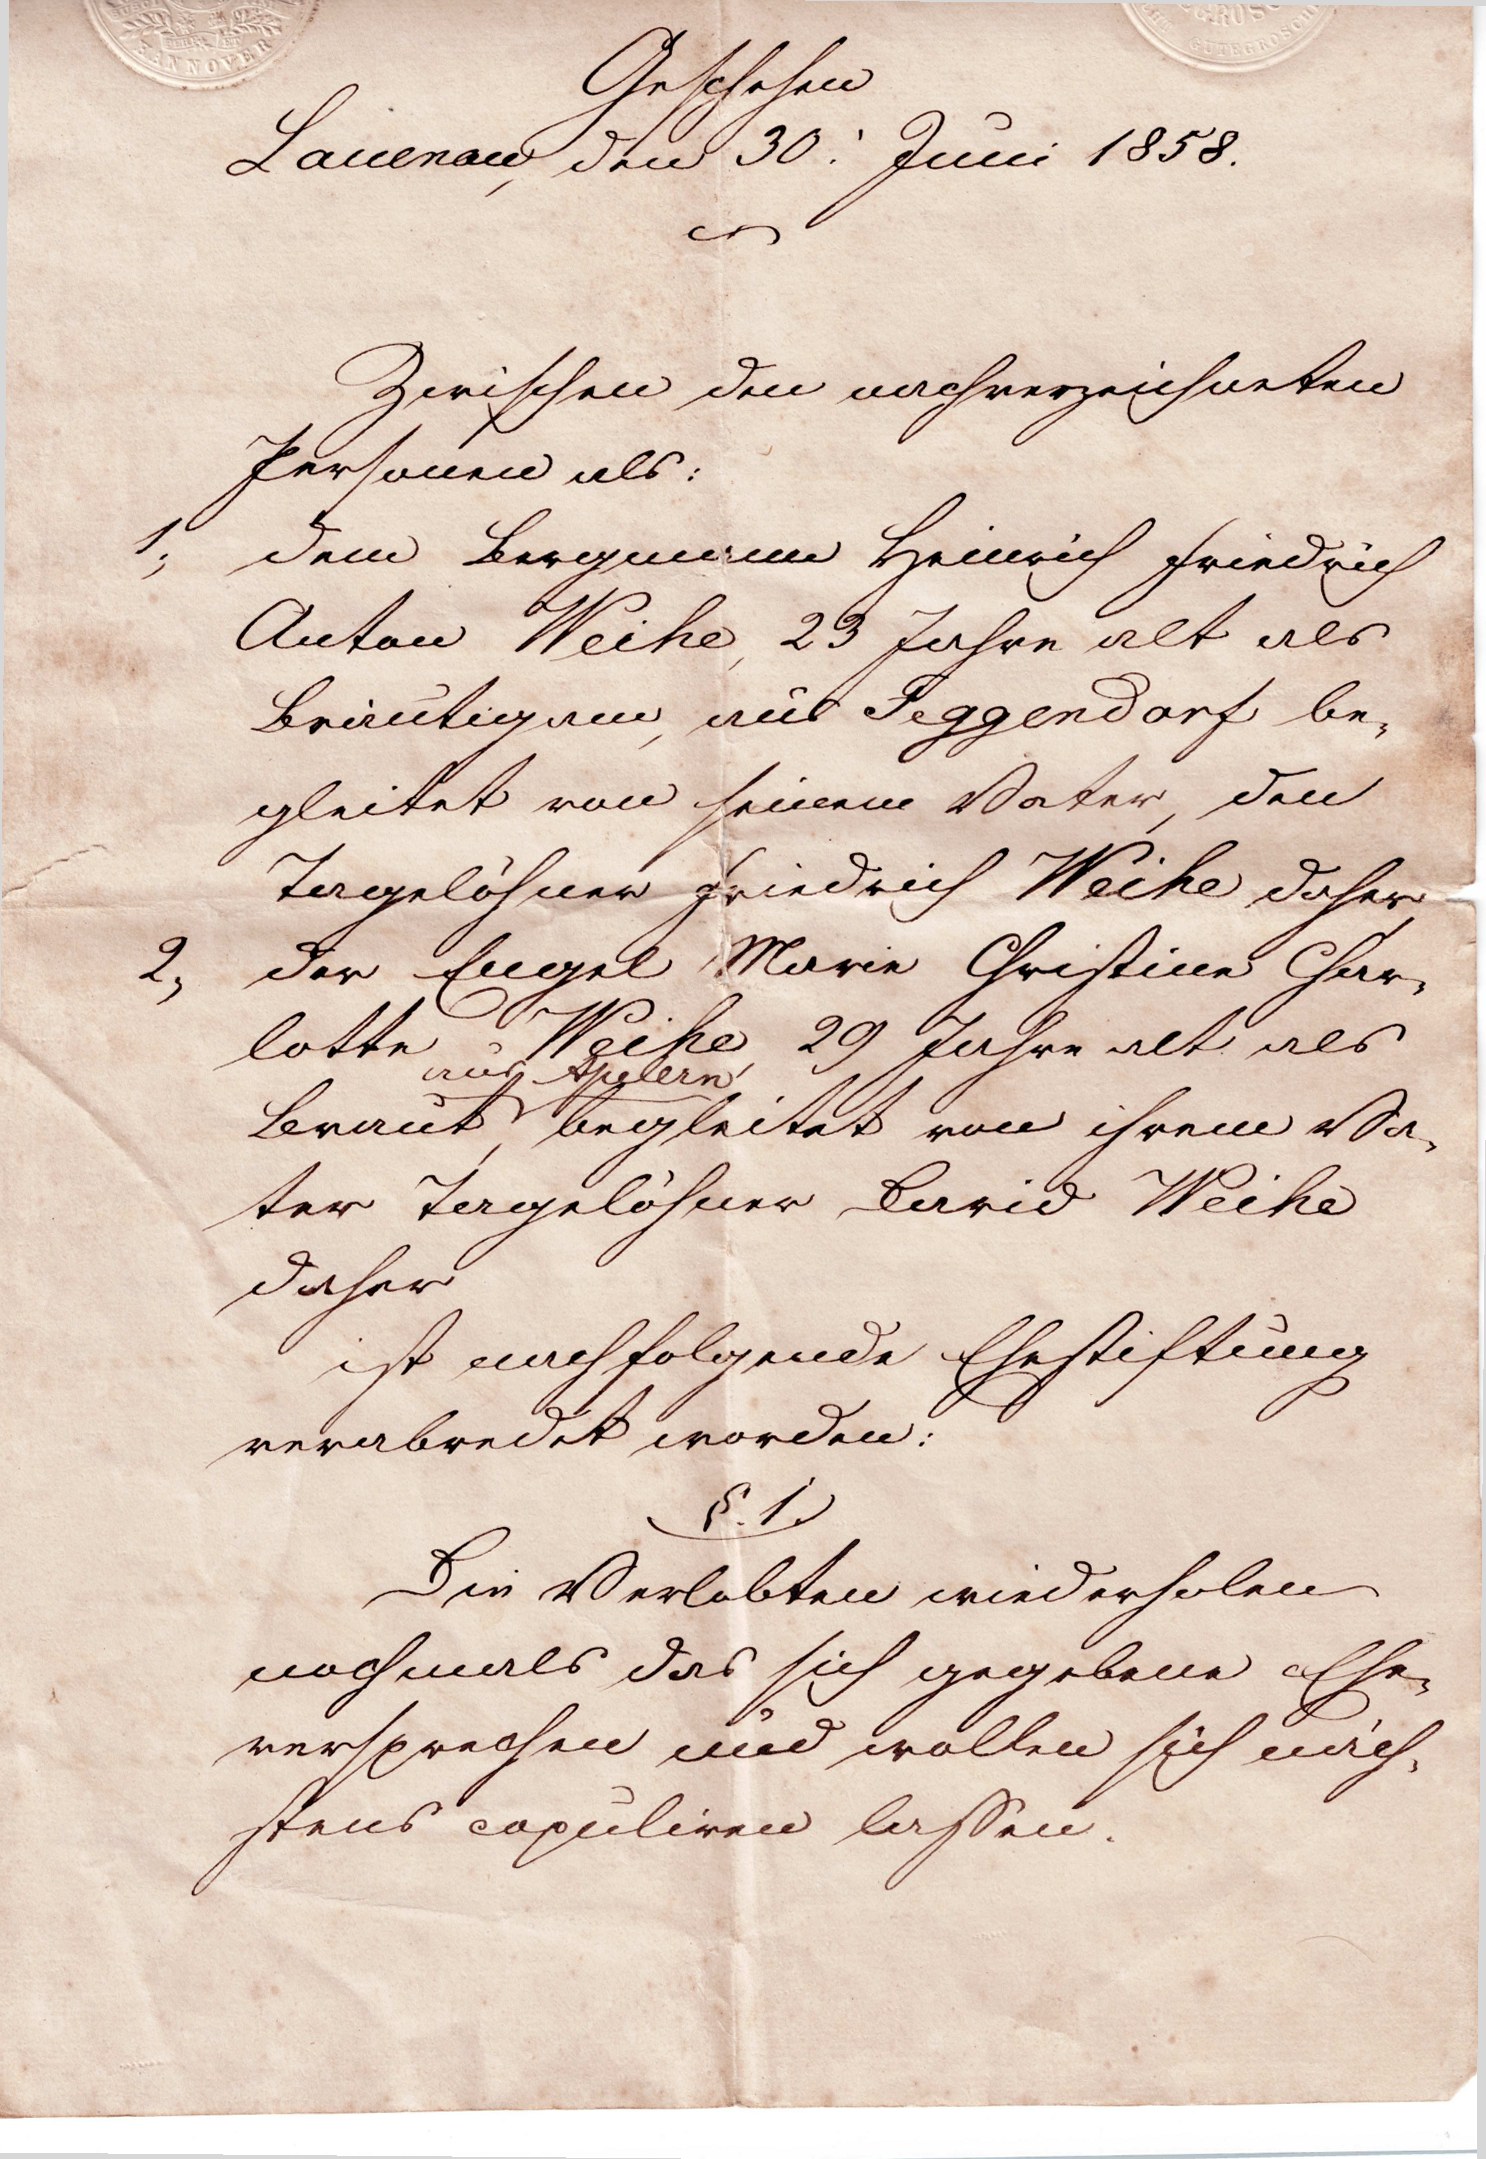 HANNOVER
GUTEGROSCH
Geschehen
Lauenau, den 30. Juni 1858.
Zwischen den nachverzeichneten
Personen als:
1, dem Bergmann Heinrich Friedrich
Anton Weihe, 23 Jahre alt als
Bräutigam, aus Feggendorf be-
gleitet von seinem Vater, den
Tagelöhner Friedrich Weihe daher,
2, der Engel Marie Christine Char-
lotte Weihe, 29 Jahre alt als
aus Apelern
Braut, begleitet von ihrem Va-
ter Tagelöhner David Weihe
daher
ist nachfolgende Ehestiftung
verabredet worden:
§. 1.
Die Verlobten wiederholen
nochmals das sich gegebene Ehe-
versprechen und wollen sich näch-
stens copuliren lassen.